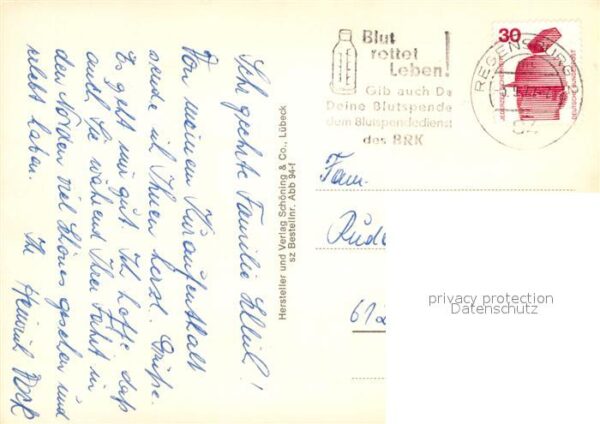 Sehr geehrte Familie
Von meinem Kuraufenthalt
sende ich Ihnen herzl. Grüße.
Es geht mir gut. Ich hoffe, daß
auch Sie während Ihrer Fahrt in
den Norden viel Schönes gesehen und
erlebt haben.
Ihr Heinrich
Hersteller und Verlag Schöning & Co., Lübeck
sz Bestellnr. Abb 94-f
Blut
rettet
Leben!
Gib auch Du
Deine Blutspende
dem Blutspendedienst
des BRK
REGENSBURG 2
84
30
Fam.
privacy protection
Datenschutz